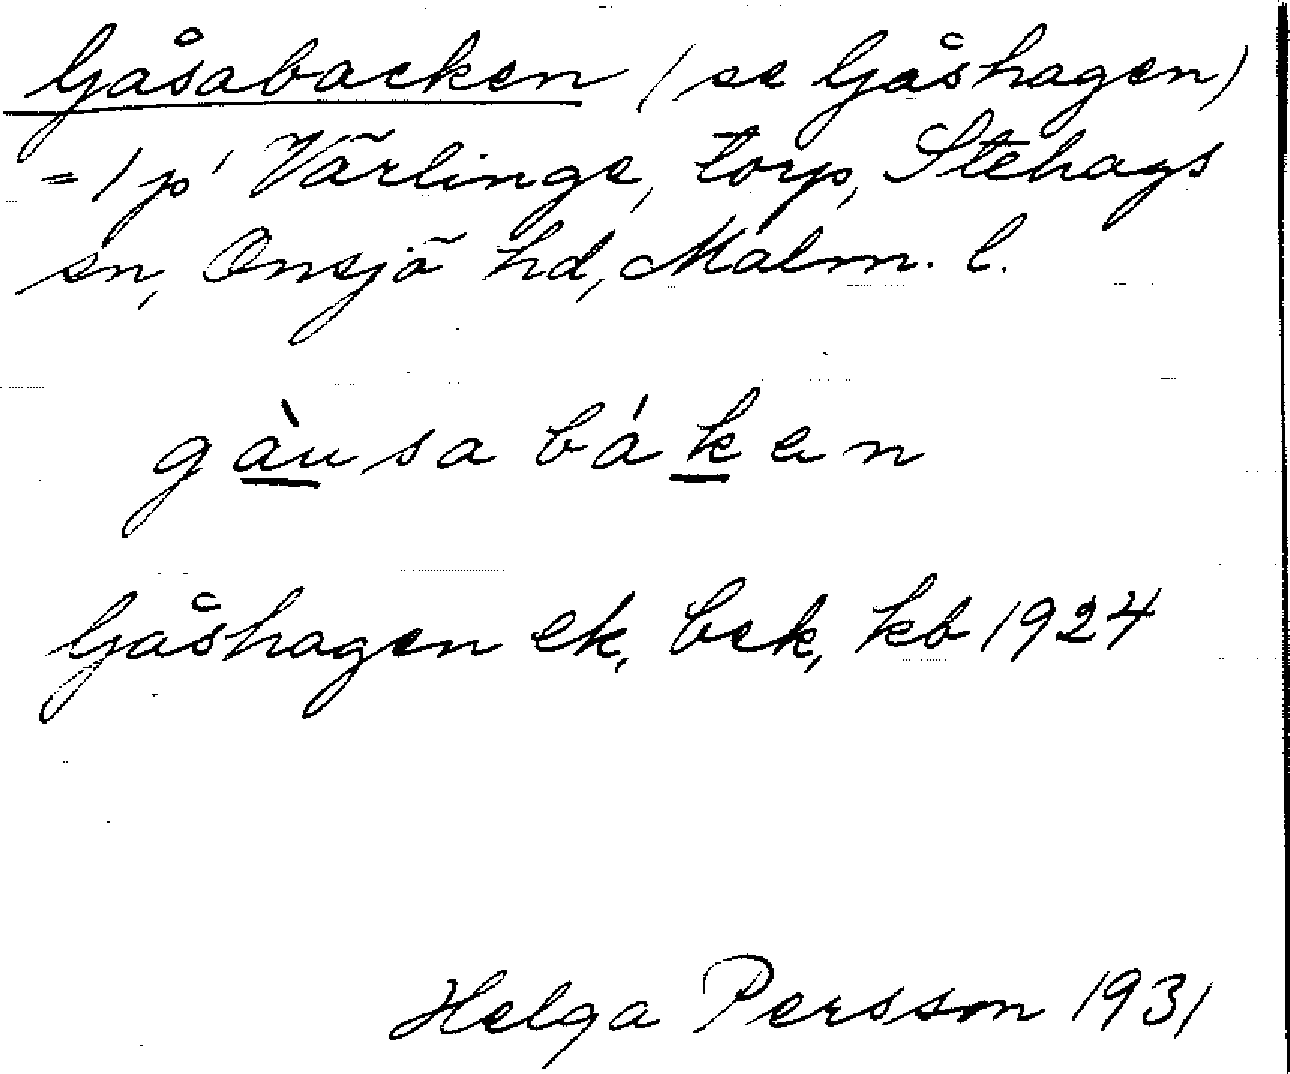 Gåsabacken (se Gåshagen)
= 1 p' Värlinge, torp, Stehags
sn, Onsjö hd, Malm. l.
gàusa báken
Gåshagen ek, bek, kb 1924
Helga Persson 1931